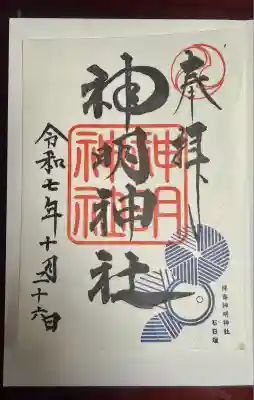 奉拝
神明神社
神明
神社
令和七年十月二十六日
神明神社
石臼塚